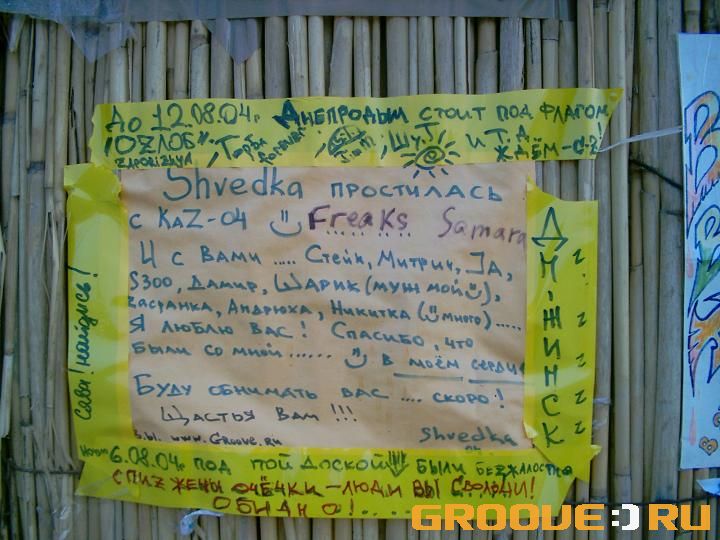 До 12.08.04г. Днепродым стоит под флагом
"OZЛОБ" Шут и т.д
ZAPORIZHYA ждём-с!
Shvedka простилась
с KaZ-04 Freaks Samara
И с вами ..... Стейк, Митрич, За,
S300, Дамир, Шарик (муж мой),
Засранка, Андрюха, Никитка (много) .....
Я люблю вас! Спасибо, что
были со мной ...... в моём сердце
Буду обнимать вас .... скоро!
Щастья вам !!!
З.Ы. www.Groove.ru Shvedka
04
Савя! найдись!
Ночью 6.08.04г под той доской!!! были безжалостно
спизжены очёчки – люди вы сволочи!
Обидно!....
GROOVE:)RU